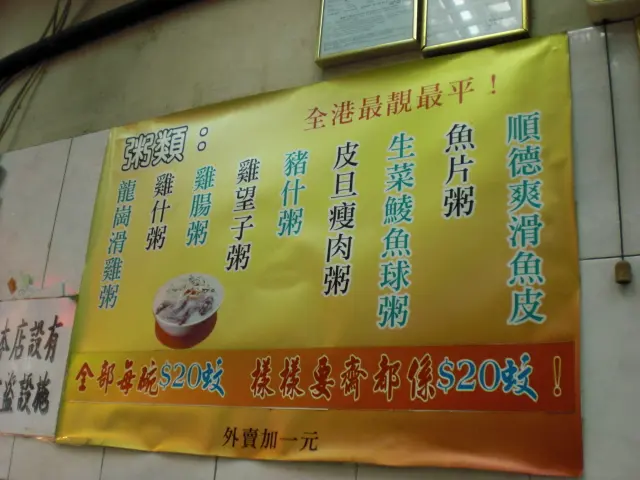 全港最靚最平！
粥類：
順德爽滑魚皮
魚片粥
生菜鯪魚球粥
皮旦瘦肉粥
豬什粥
雞望子粥
雞腸粥
雞什粥
龍崗滑雞粥
全部每碗$20蚊 樣樣要齊都係$20蚊！
外賣加一元
本店設有
盜設施